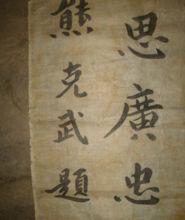 思廣忠
熊克武題